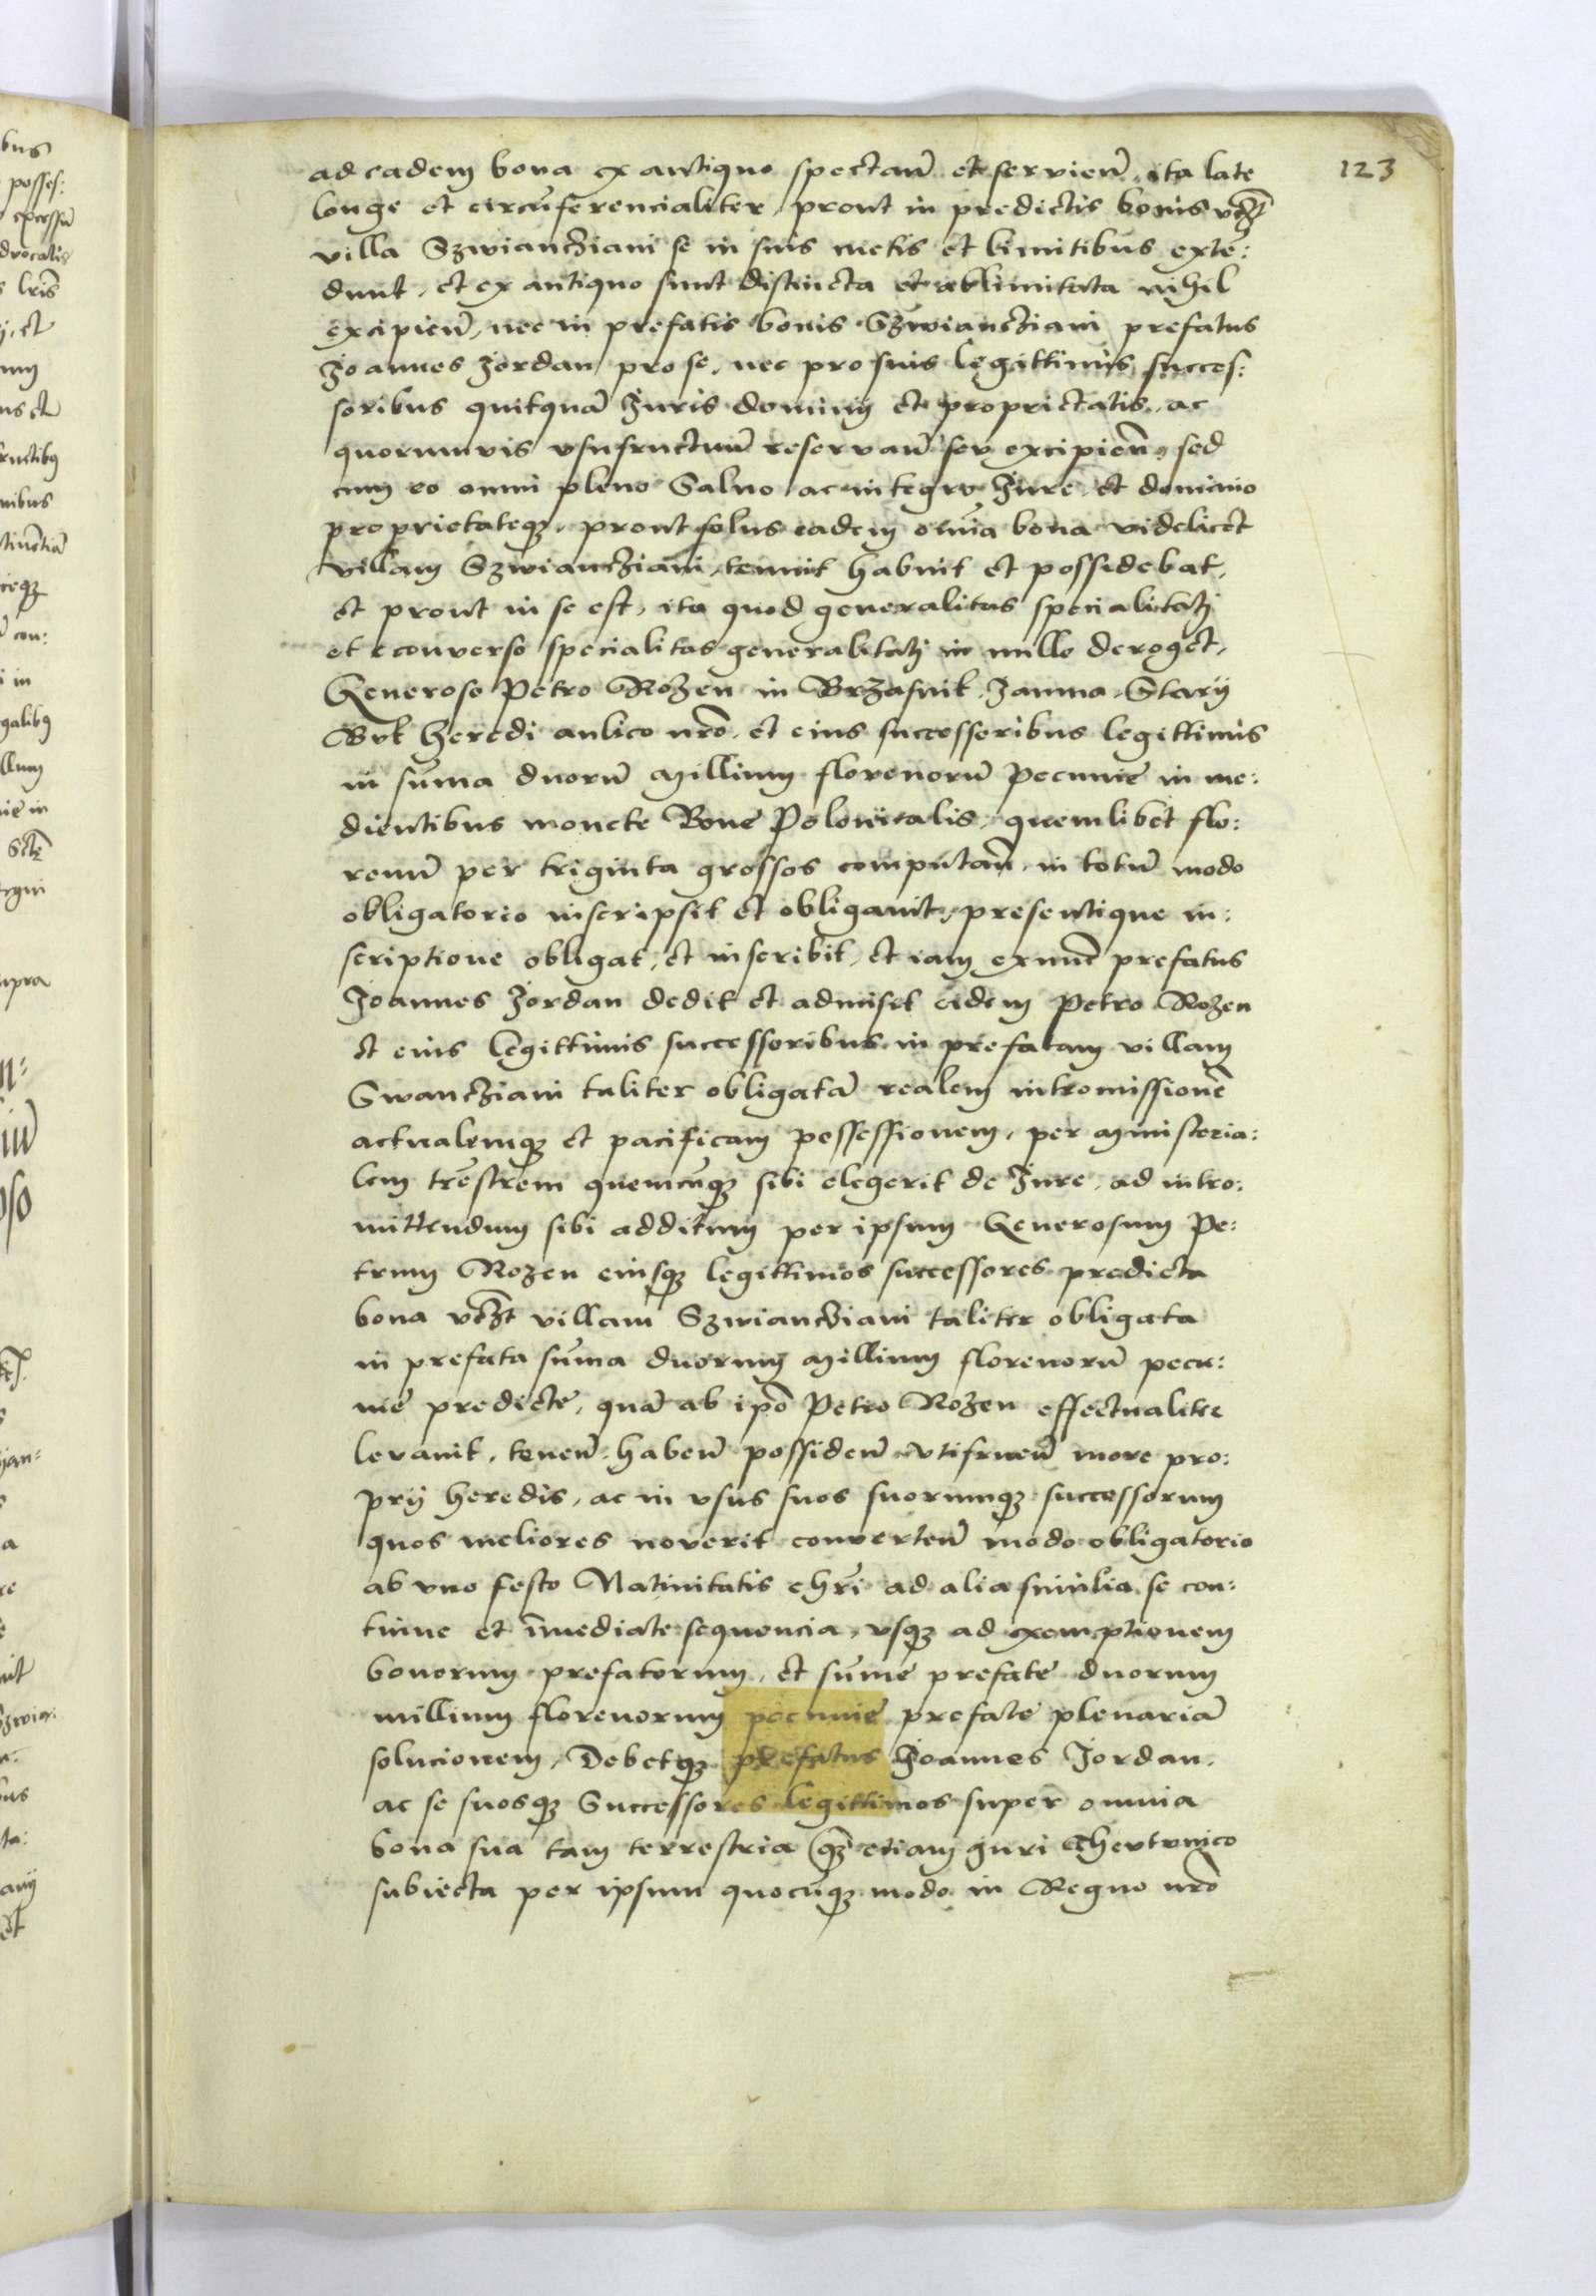 123
ad eadem bona ex antiquo spectan̄ et servien̄, ita late
longe et circūferencialiter, prout in predictis bonis vcz̄t
villa Szwianczani se in suis metis et limitibus extē:
dunt, et ex antiquo sunt distincta et ablimitata nihil
excipien̄, nec in prefatis bonis Szwianczani prefatus
Joannes Jordan pro se, nec pro suis legittimis succes:
soribus quitquā Juris dominij et proprietatis, ac
quorumvis vsufructuū reservan̄ seu excipien̄, sed
cum eo omni pleno Salvo ac integro Jure et dominio
proprietateqꝫ, prout solus eadem om̄ia bona videlicet
villam Szwianczani, tenuit habuit et possidebat,
et prout in se est, ita quod generalitas specialitati
et econverso specialitas generalitati in nullo deroget,
Generoso Petro Rozen in Brzasnik, Jamna, Starij
Bvk heredi aulico nr̄o, et eius successoribus legittimis
in sūma duorū millium florenorū pecunie in me:
dientibus monete Bone Polonicalis, quemlibet flo:
renū per triginta grossos computan̄, in totū modo
obligatorio inscripsit et obligavit, presentique in:
scriptione obligat, et inscribit, et iam exnūc prefatus
Joannes Jordan dedit et admisit eidem Petro Rozen
et eius legittimis successoribus in prefatam villam
Swancziani taliter obligatā realem intromissionē
actualemqꝫ et pacificam possessionem, per ministeria:
lem trēstrem quemcūqꝫ sibi elegerit de Jure, ad intro:
mittendum sibi additum per ipsum Generosum Pe:
trum Rozen eiusqꝫ legittimos successores predicta
bona vcz̄t villam Szwianciani taliter obligata
in prefata sūma duorum millium florenorū pecu:
nie predicte, quā ab ip̄o Petro Rozen effectualiter
levavit, tenen̄ haben̄ possiden̄ vtifruen̄ more pro:
prij heredis, ac in vsus suos suorumqꝫ successorum
quos meliores noverit converten̄ modo obligatorio
ab vno festo Nativitatis chr̄i ad alia similia se con:
tinue et īmediate sequencia, vsqꝫ ad exemptionem
bonorum prefatorum, et sūme prefate duorum
millium florenorum pecunie prefate plenariā
solucionem, Debetqꝫ prefatus Joannes Jordan,
ac se suosqꝫ Successores legittimos super omnia
bona sua tam terrestria qꝫ̄ etiam juri Thevtvnico
subiecta per ipsum quocūqꝫ modo in Regno nr̄o